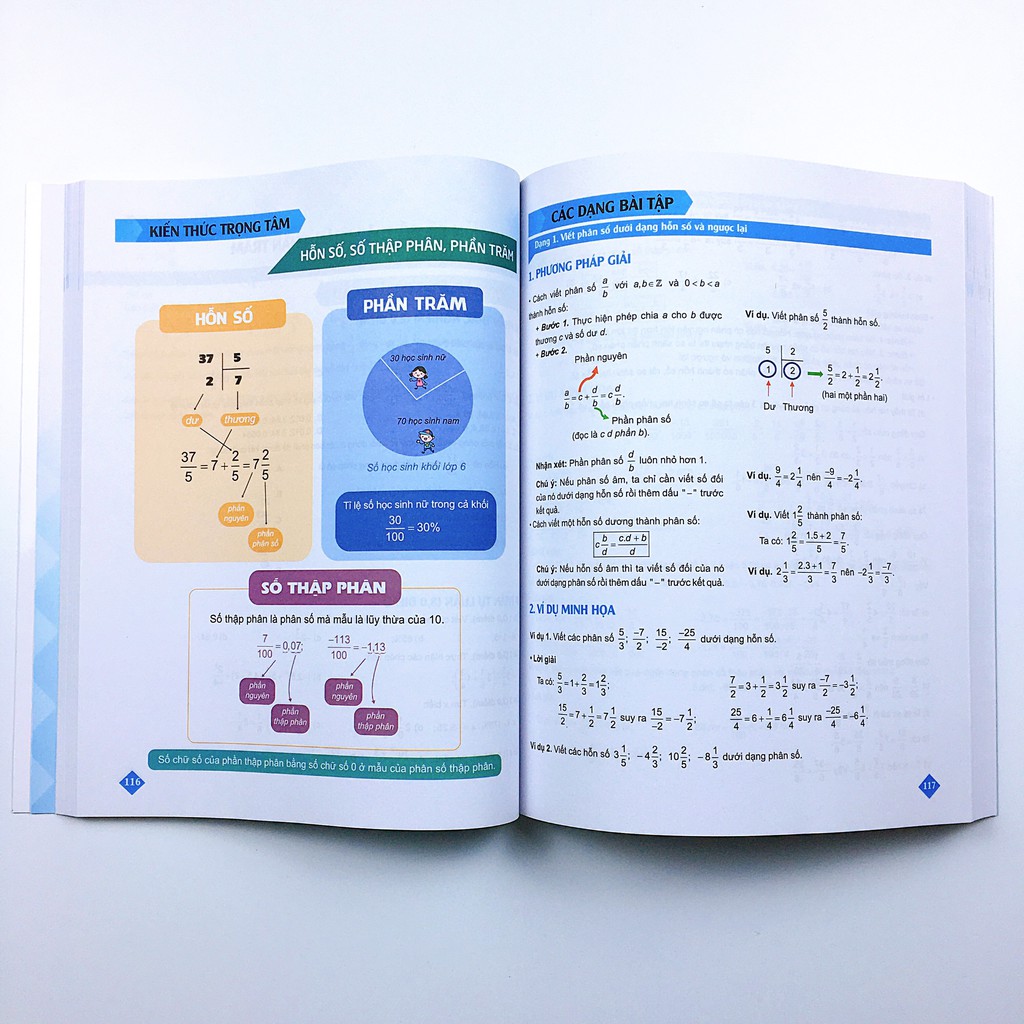 KIẾN THỨC TRỌNG TÂM
HỖN SỐ, SỐ THẬP PHÂN, PHẦN TRĂM
HỖN SỐ
37 | 5
2 | 7
dư thương
37/5 = 7 + 2/5 = 7 2/5
phần
nguyên
phần
phân số
PHẦN TRĂM
30 học sinh nữ
70 học sinh nam
Số học sinh khối lớp 6
Tỉ lệ số học sinh nữ trong cả khối
30/100 = 30%
SỐ THẬP PHÂN
Số thập phân là phân số mà mẫu là lũy thừa của 10.
7/100 = 0,07; -113/100 = -1,13
phần
nguyên
phần
thập phân
phần
nguyên
phần
thập phân
Số chữ số của phần thập phân bằng số chữ số 0 ở mẫu của phân số thập phân.
116
CÁC DẠNG BÀI TẬP
Dạng 1. Viết phân số dưới dạng hỗn số và ngược lại
1. PHƯƠNG PHÁP GIẢI
• Cách viết phân số a/b với a,b∈ℤ và 0<b<a
thành hỗn số:
+ Bước 1. Thực hiện phép chia a cho b được
thương c và số dư d.
+ Bước 2.
Phần nguyên
a/b = c + d/b = c d/b.
Phần phân số
(đọc là c d phần b).
Ví dụ. Viết phân số 5/2 thành hỗn số.
5 | 2
1 | 2
5/2 = 2 + 1/2 = 2 1/2.
(hai một phần hai)
Dư Thương
Nhận xét: Phần phân số d/b luôn nhỏ hơn 1.
Chú ý: Nếu phân số âm, ta chỉ cần viết số đối
của nó dưới dạng hỗn số rồi thêm dấu "–" trước
kết quả.
Ví dụ. 9/4 = 2 1/4 nên -9/4 = -2 1/4.
• Cách viết một hỗn số dương thành phân số:
c b/d = c.d + b/d
Ví dụ. Viết 1 2/5 thành phân số:
Ta có: 1 2/5 = 1.5 + 2/5 = 7/5.
Chú ý: Nếu hỗn số âm thì ta viết số đối của nó
dưới dạng phân số rồi thêm dấu "–" trước kết quả.
Ví dụ. 2 1/3 = 2.3 + 1/3 = 7/3 nên -2 1/3 = -7/3.
2. VÍ DỤ MINH HỌA
Ví dụ 1. Viết các phân số 5/3; -7/2; 15/-2; -25/4 dưới dạng hỗn số.
• Lời giải
Ta có: 5/3 = 1 + 2/3 = 1 2/3; 7/2 = 3 + 1/2 = 3 1/2 suy ra -7/2 = -3 1/2;
15/2 = 7 + 1/2 = 7 1/2 suy ra 15/-2 = -7 1/2; 25/4 = 6 + 1/4 = 6 1/4 suy ra -25/4 = -6 1/4.
Ví dụ 2. Viết các hỗn số 3 1/5; -4 2/3; 10 2/5; -8 1/3 dưới dạng phân số.
117